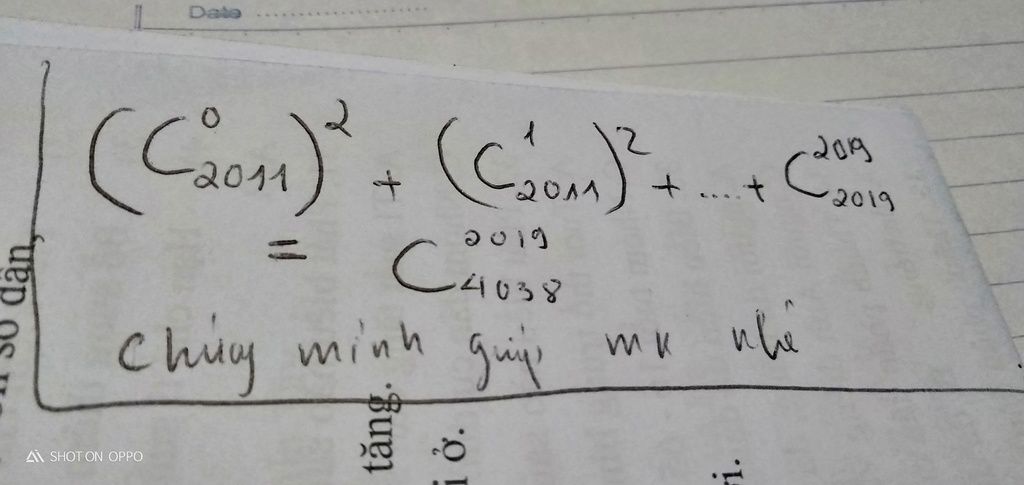 Date
(C⁰₂₀₁₁)² + (C¹₂₀₁₁)² + .... + C²⁰¹⁹₂₀₁₉
= C²⁰¹⁹₄₀₃₈
chứng minh giúp mk nhé
số dần,
tăng.
i ở.
SHOT ON OPPO